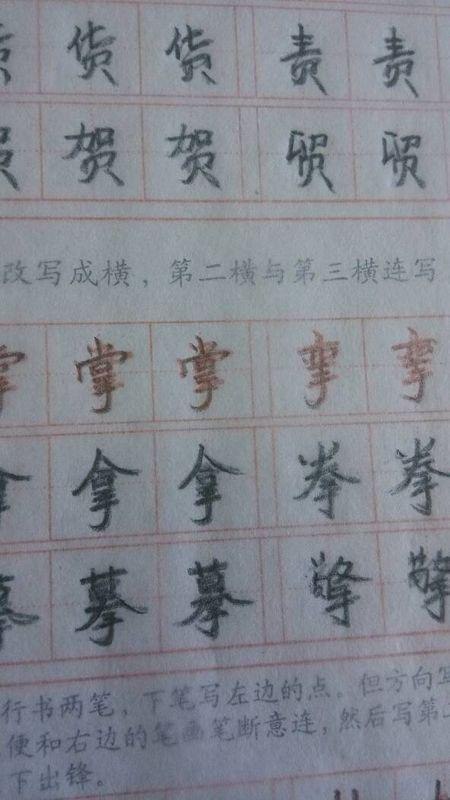 货 货 责 责
贺 贺 贸 贸
改写成横，第二横与第三横连写
掌 掌 掌 挛 挛
拿 拿 拳 拳
摹 摹 摹 擎 擎
行书两笔，下笔写左边的点。但方向写
便和右边的笔画笔断意连，然后写第二
下出锋。